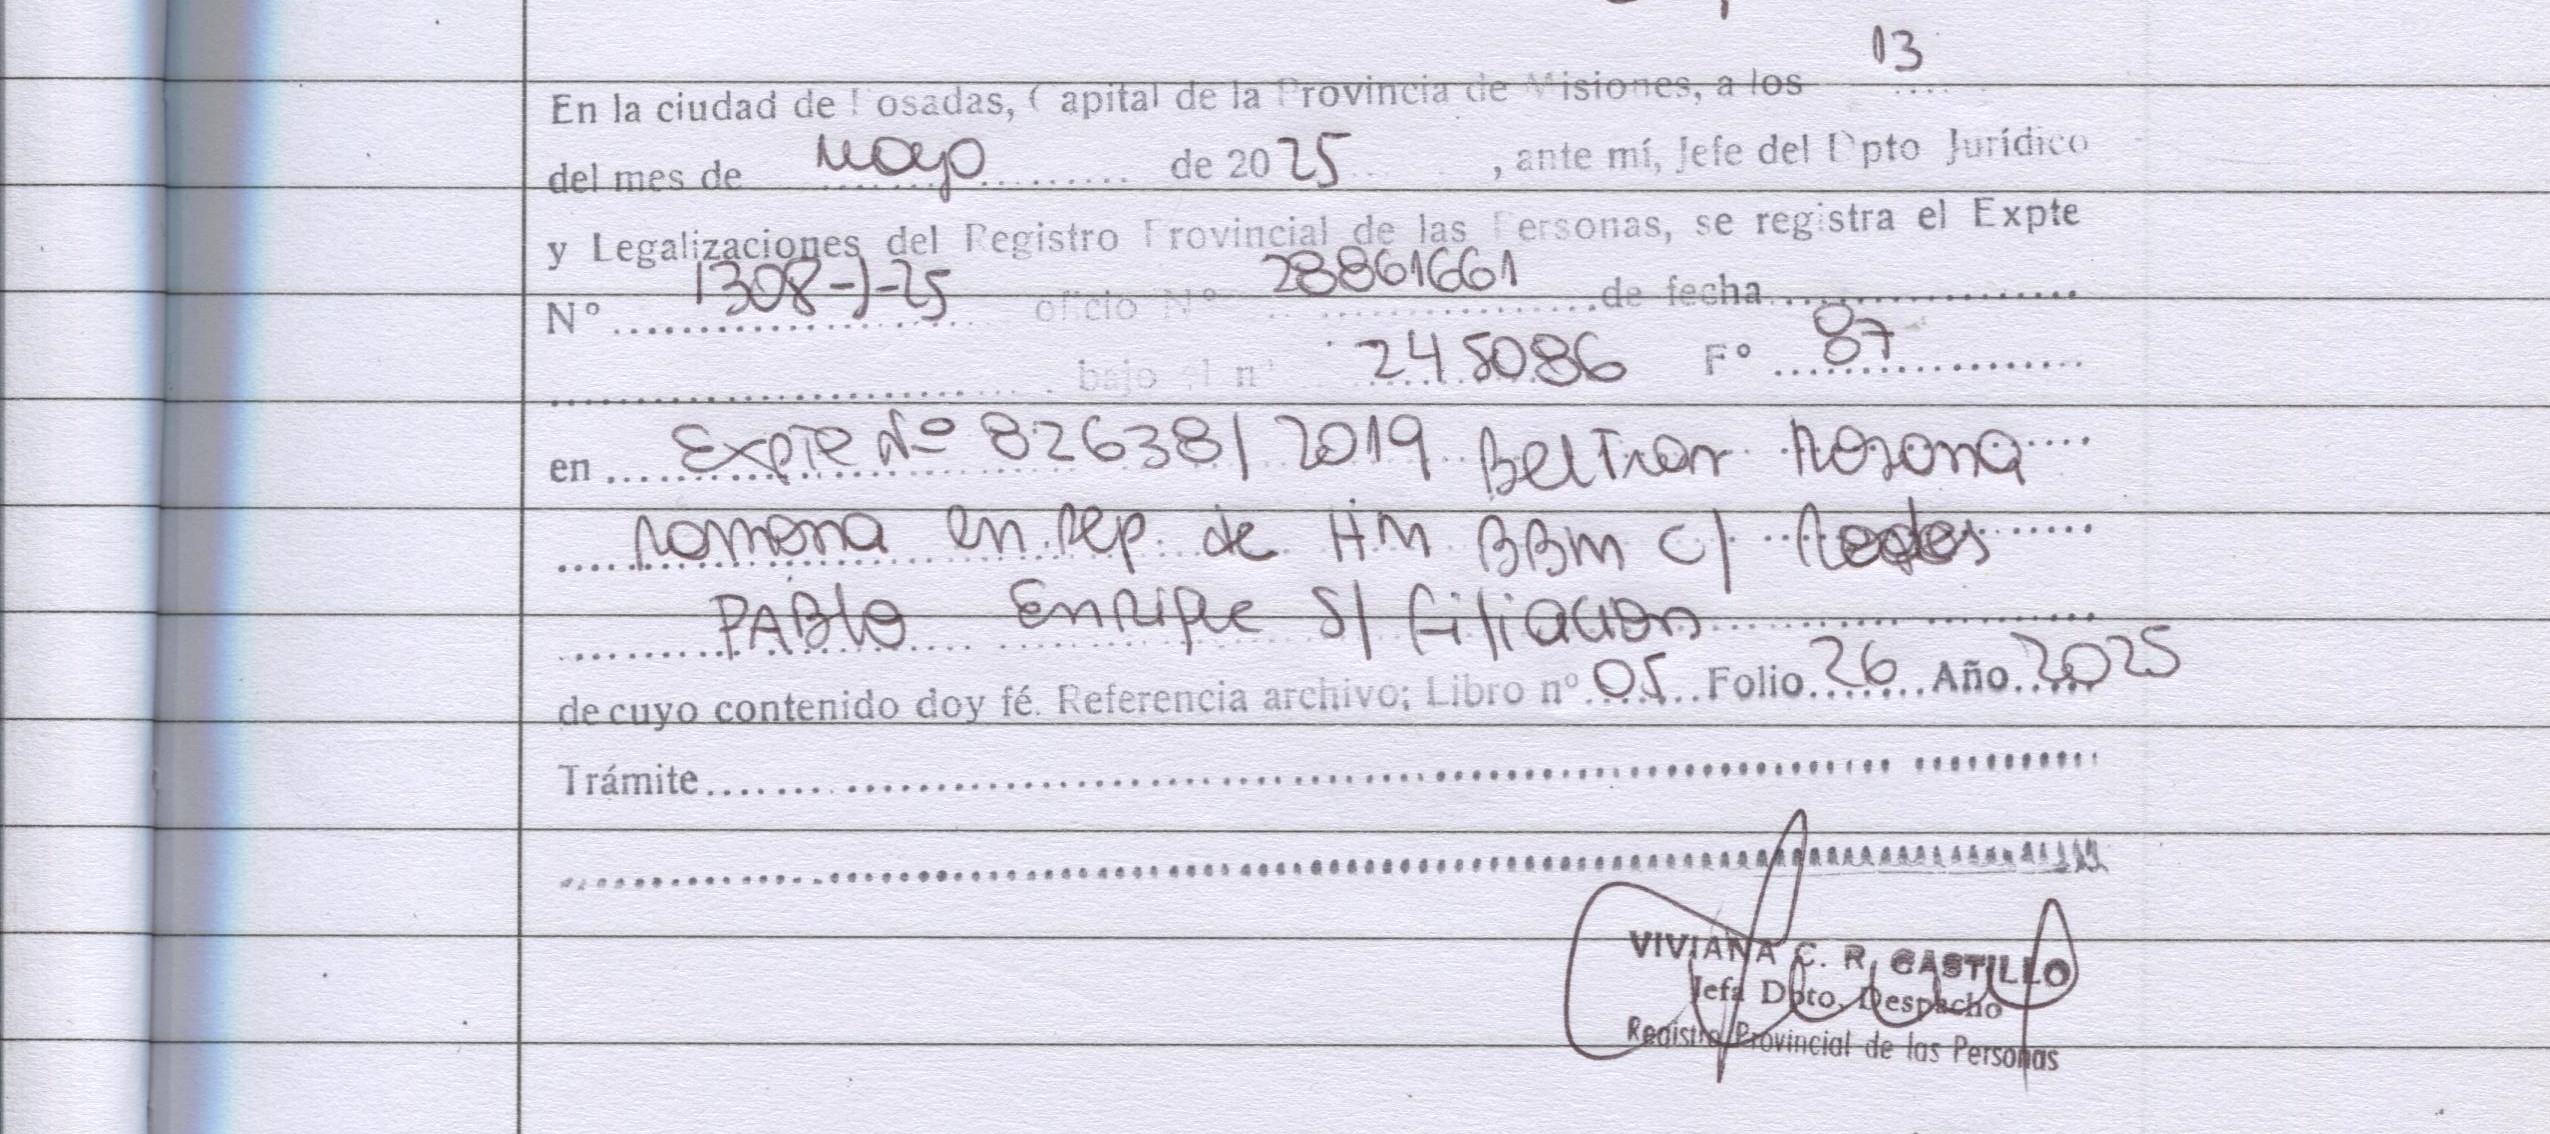 13
En la ciudad de Posadas, Capital de la Provincia de Misiones, a los ....
del mes de mayo de 2025, ante mí, Jefe del Dpto Jurídico
y Legalizaciones del Registro Provincial de las Personas, se registra el Expte
Nº 1308-J-25 oficio Nº 28861661 de fecha
bajo el nº 245086 Fº 87
en Expte Nº 82638/2019 Beltran Rosana
Romona en rep. de HM BBM C/
PABlo Enrique S/ filiacion
de cuyo contenido doy fé. Referencia archivo; Libro nº 05 Folio 26 Año 2025
Trámite
VIVIANA C. R. CASTILLO
Jefa Dpto. Despacho
Registro Provincial de las Personas